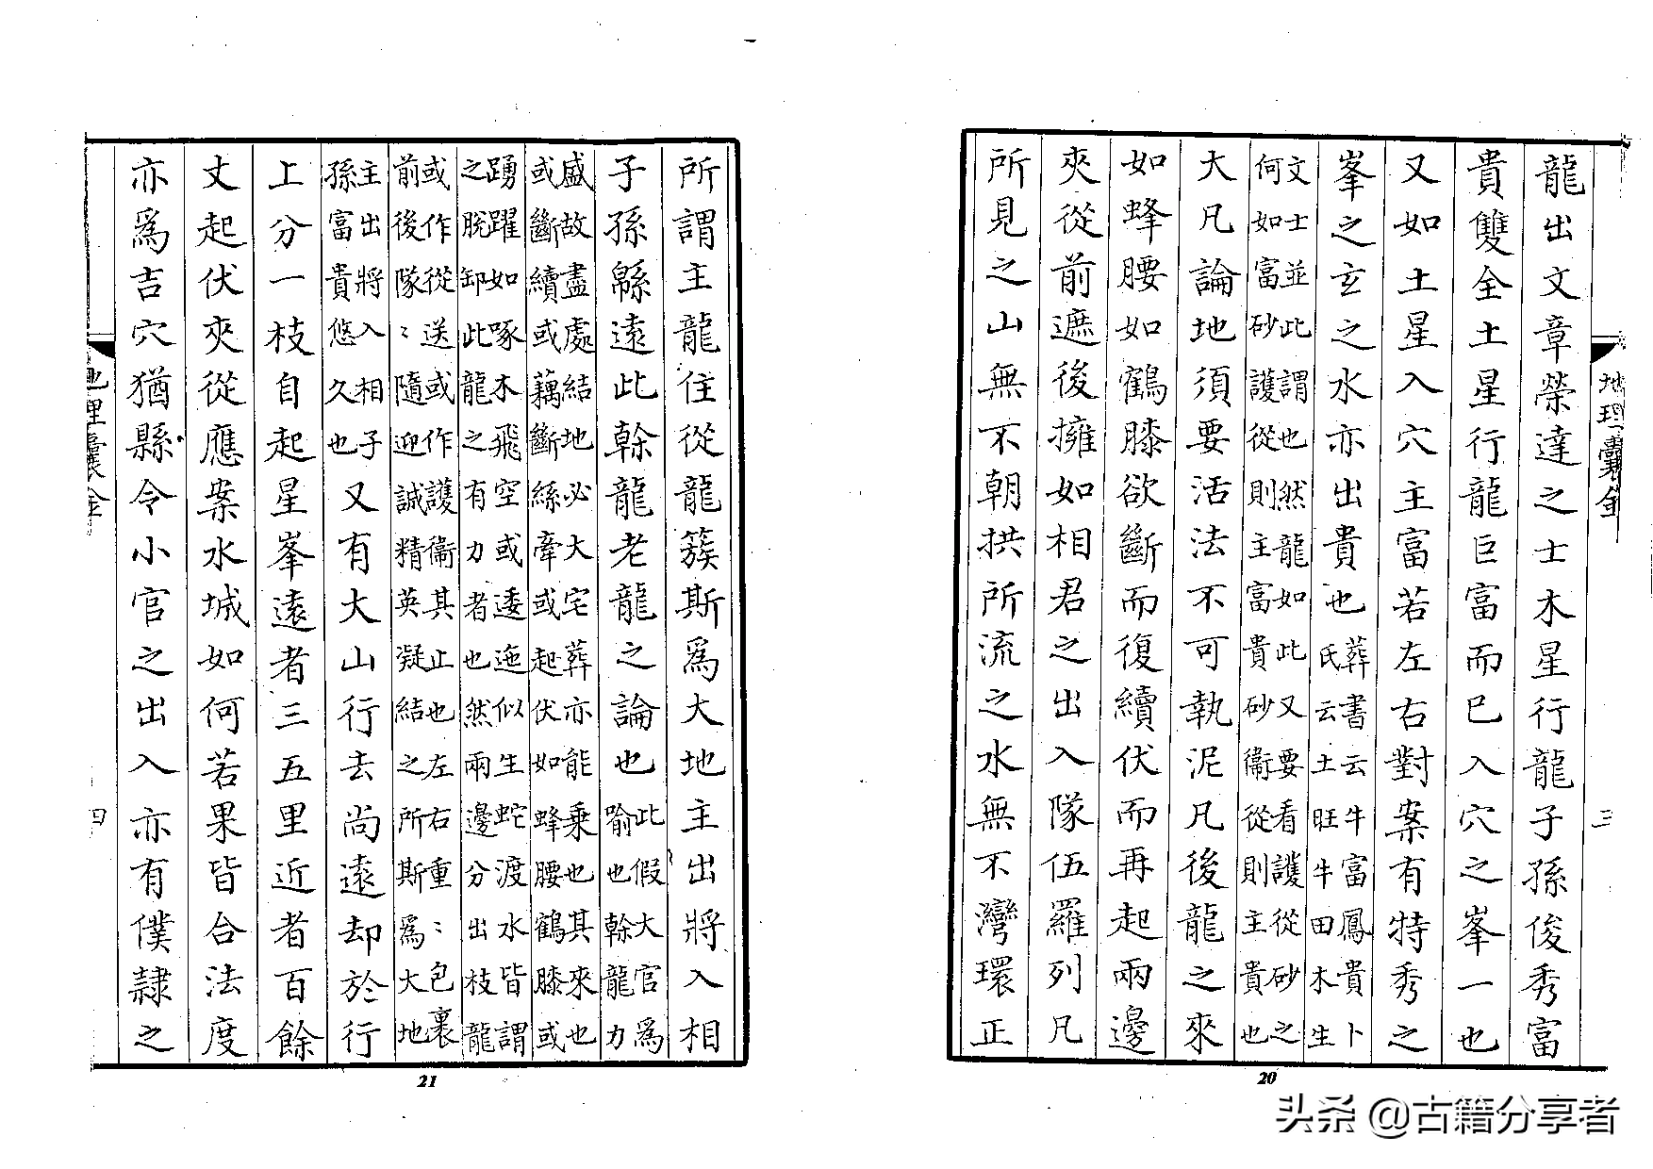 地理囊金
三
龍出文章榮達之士木星行龍子孫俊秀富
貴雙全土星行龍巨富而已入穴之峯一也
又如土星入穴主富若左右對案有特秀之
峯之玄之水亦出貴也葬書云牛富鳳貴卜
氏云土旺牛田木生
文士並此謂也然龍如此又要看護從砂之
何如富砂護從則主富貴砂衞從則主貴也
大凡論地須要活法不可執泥凡後龍之來
如蜂腰如鶴膝欲斷而復續伏而再起兩邊
夾從前遮後擁如相君之出入隊伍羅列凡
所見之山無不朝拱所流之水無不灣環正
20
所謂主龍住從龍簇斯爲大地主出將入相
子孫緜遠此幹龍老龍之論也此假大官爲
喻也幹龍力
盛故盡處結地必大宅葬亦能乘也其來也
或斷續或藕斷絲牽或起伏如蜂腰鶴膝或
踴躍如啄木飛空或逶迤似生蛇渡水皆謂
之脫卸此龍之有力者也然兩邊分出枝龍
或作從送或作護衞其止也左右重〻包裹
前後隊〻隨迎誠精英凝結之所斯爲大地
主出將入相子
孫富貴悠久也又有大山行去尚遠却於行
上分一枝自起星峯遠者三五里近者百餘
丈起伏夾從應案水城如何若果皆合法度
亦爲吉穴猶縣令小官之出入亦有僕隷之
地理囊金
四
21
头条 @古籍分享者